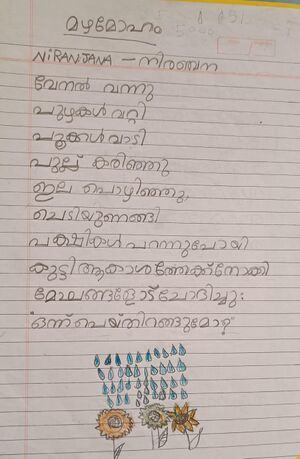 മഴമോഹം
NiRANJANA - നിരഞ്ജന
വേനൽ വന്നു
പുഴകൾ വറ്റി
പൂക്കൾ വാടി
പുല്ല് കരിഞ്ഞു
ഇല പൊഴിഞ്ഞു,
ചെടിയുണങ്ങി
പക്ഷികൾ പറന്നുപോയി
കുട്ടി ആകാശത്തേക്ക് നോക്കി
മേഘങ്ങളോട് ചോദിച്ചു:
"ഒന്ന് പെയ്തിറങ്ങുമോ?"